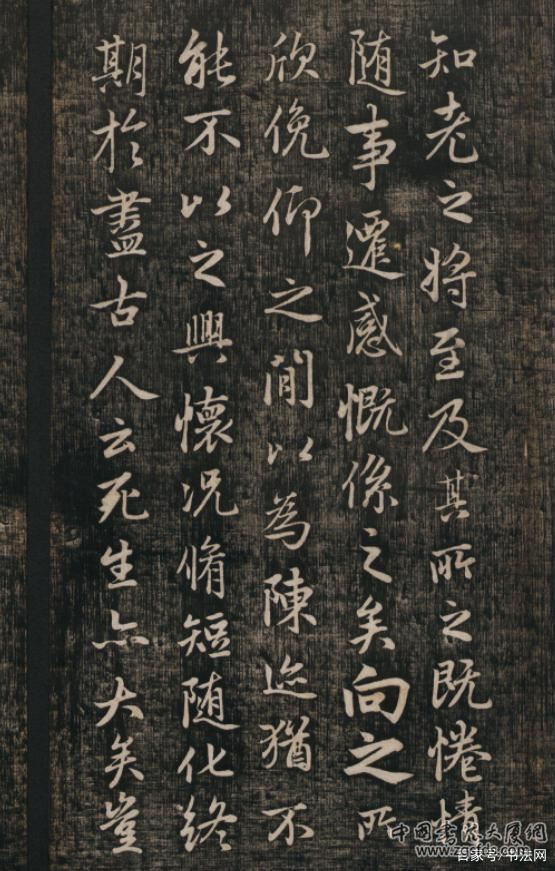 知老之将至及其所之既惓情
随事遷感慨係之矣向之所
欣俛仰之間以為陳迹猶不
能不以之興懷况脩短随化終
期於盡古人云死生亦大矣豈
中国書法大厦网
www.zgsfds.com
百家号/书法网